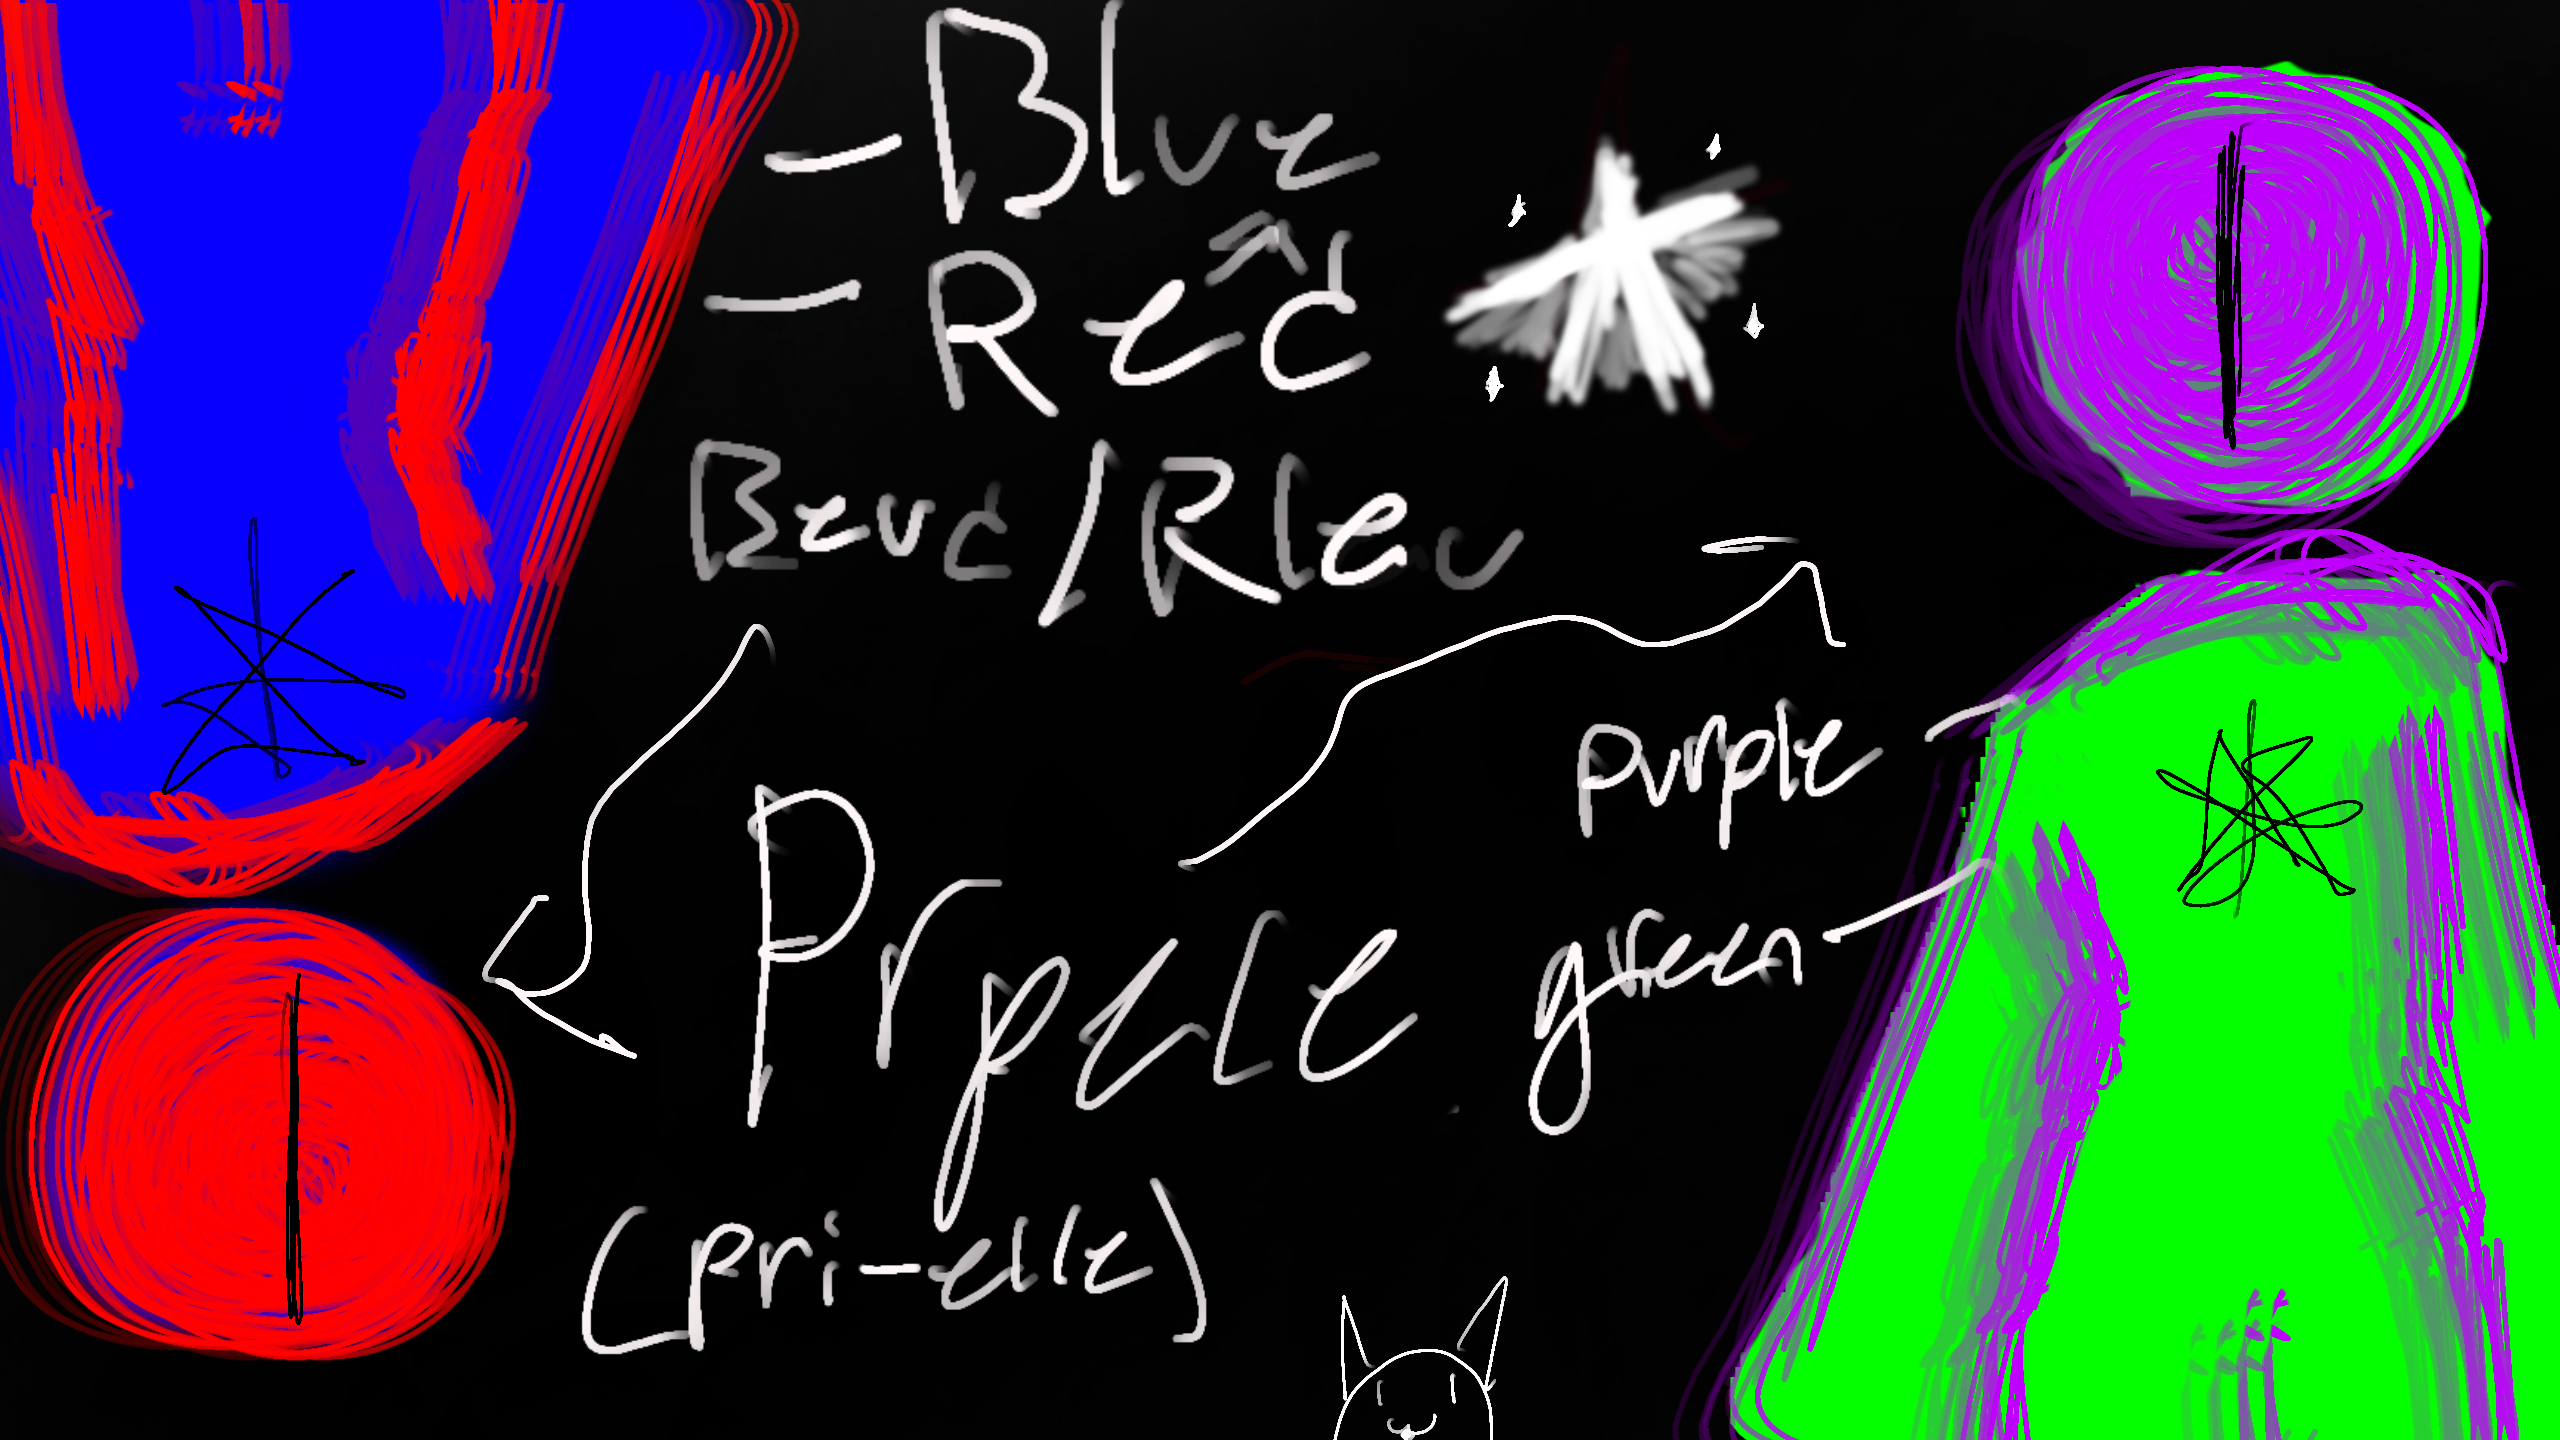 Blue
Red
Beud/Rleu
purple
Prpele
green
(pri-elle)